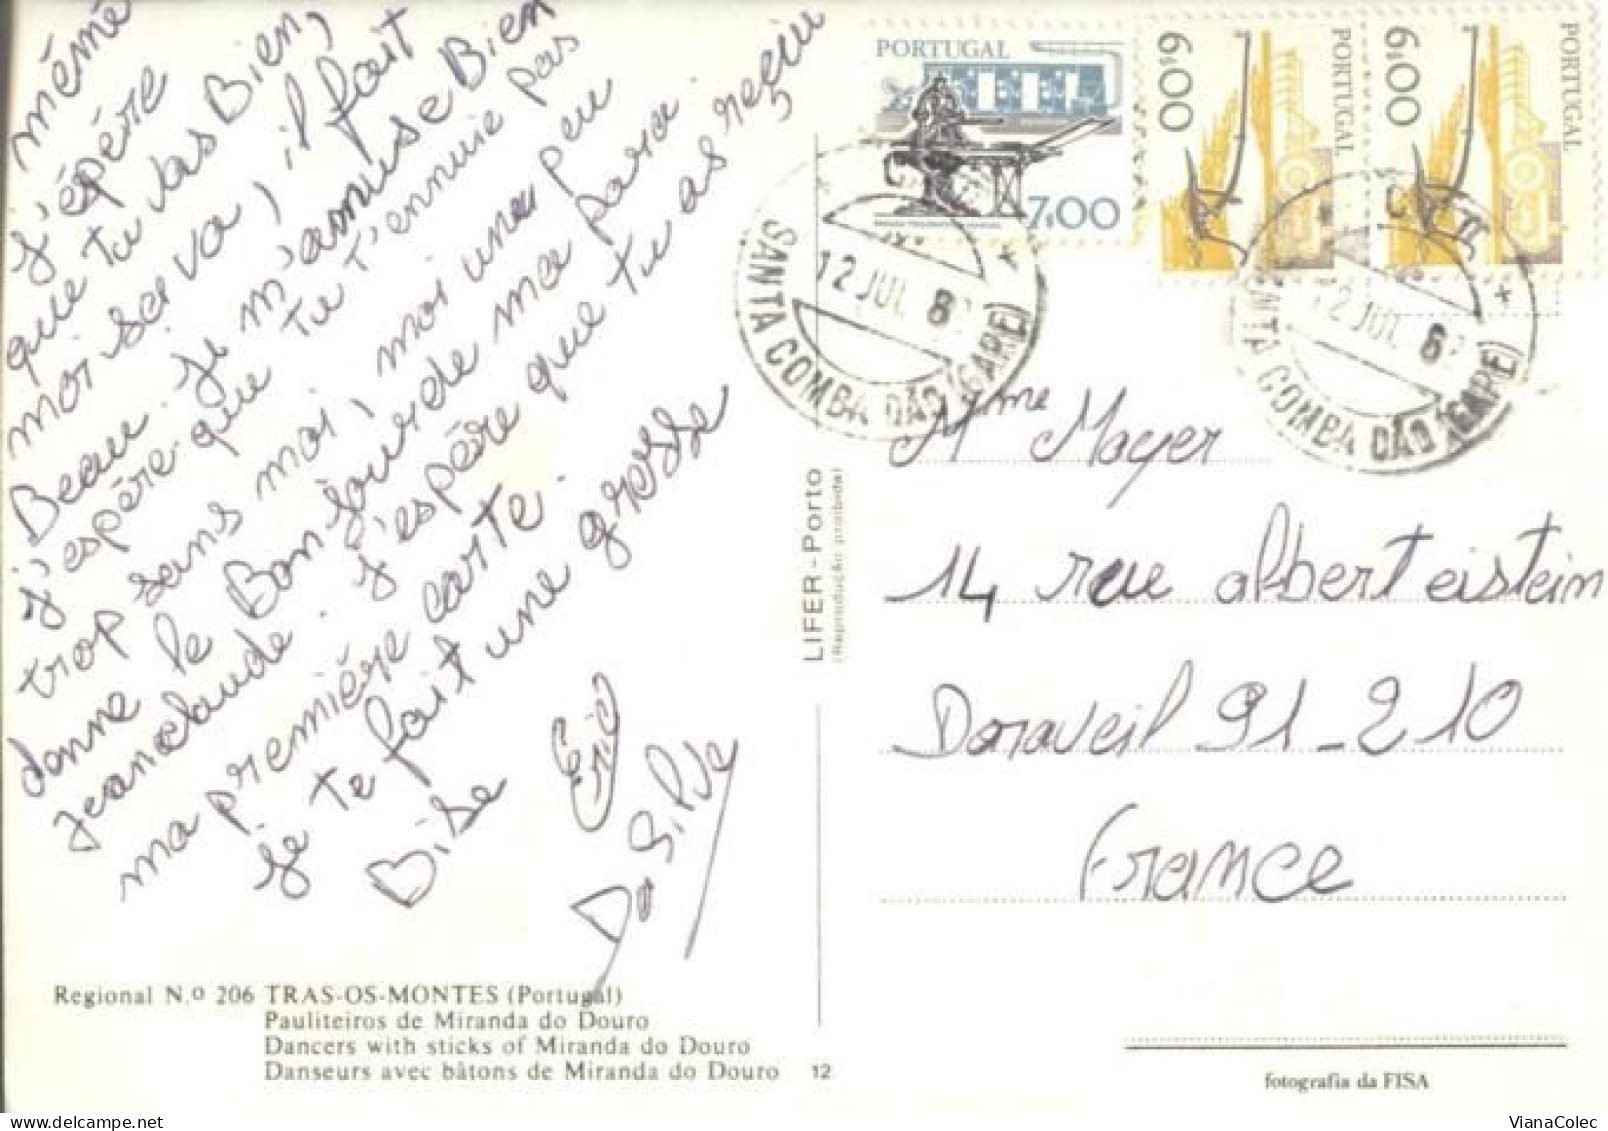 mémé
j'épére
que tu vas Bien,
moi sa va, il fait
Beau. Je m'amuse Bien
j'espére que tu t'ennuie pas
trop sans moi, moi un peu
donne le Bonjour de ma para.
jeanclaude. j'espére que tu as reçiu
ma première carte.
je te fait une grosse
Bise
Eric
Da Silva
PORTUGAL
7.00
PORTUGAL
6.00
PORTUGAL
6.00
SANTA COMBA DÃO (GARE)
12 JUL 8
SANTA COMBA DÃO (GARE)
12 JUL 8
Mme Mayer
14 rue albert eistein
Doraveil 91_210
France
LIFER - Porto
(Reprodução proibida)
Regional N.º 206 TRAS-OS-MONTES (Portugal)
Pauliteiros de Miranda do Douro
Dancers with sticks of Miranda do Douro
Danseurs avec bâtons de Miranda do Douro 12
fotografia da FISA
VianaColec